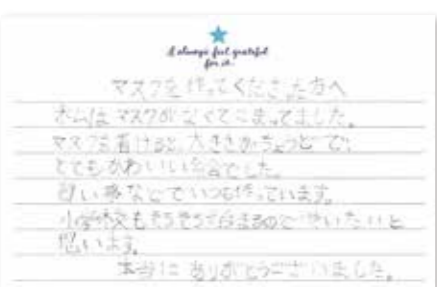 I always feel grateful
for it.
マスクを作ってくださった方へ
私はマスクがなくてこまってました。
マスクを着けると、大きさがちょうどで、
とてもかわいい
でいつも使っています。
小学校もそろそろ始まるので使いたいと
思います。
本当にありがとうございました。